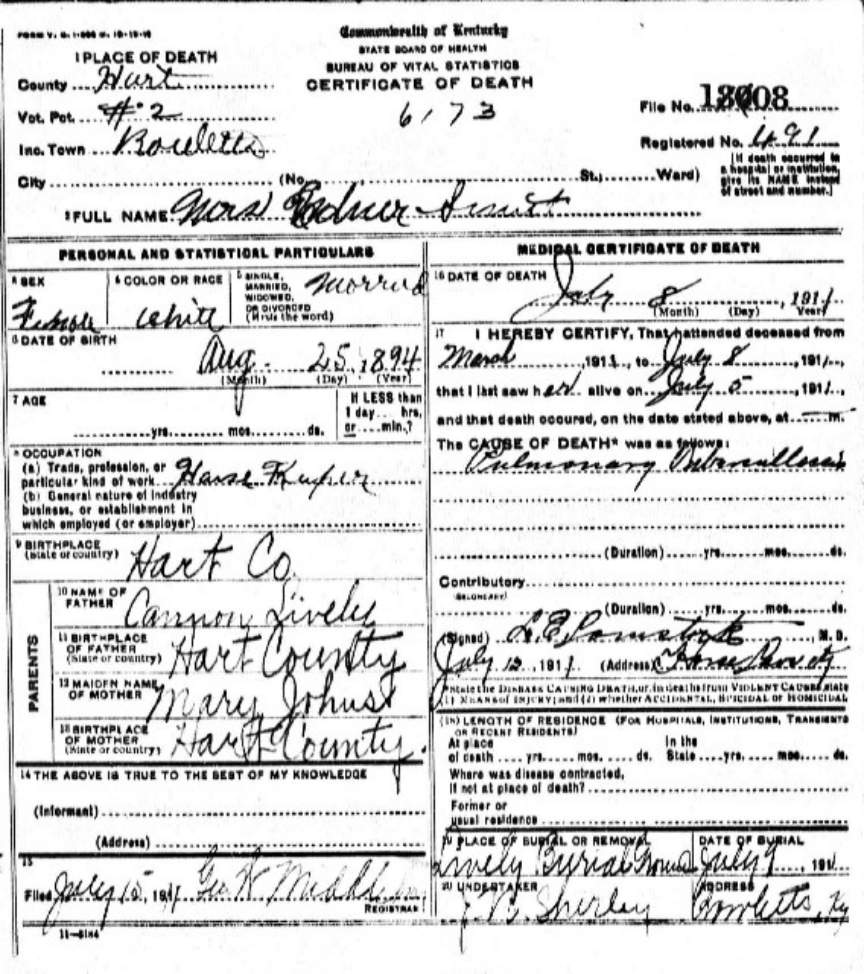 Commonwealth of Kentucky
STATE BOARD OF HEALTH
BUREAU OF VITAL STATISTICS
CERTIFICATE OF DEATH
6173
1 PLACE OF DEATH
County Hart
Vot. Pct. #2
Inc. Town
City (No. St.; Ward)
File No. 08
Registered No. 491
(If death occurred in a hospital or institution, give its NAME instead of street and number.)
2 FULL NAME Mrs
PERSONAL AND STATISTICAL PARTICULARS
3 SEX
Female
4 COLOR OR RACE
White
5 SINGLE,
MARRIED,
WIDOWED,
OR DIVORCED
(Write the word)
Morried
6 DATE OF BIRTH
Aug. 25, 1894
(Month) (Day) (Year)
7 AGE
yrs. mos. ds.
If LESS than
1 day hrs,
or min.?
8 OCCUPATION
(a) Trade, profession, or
particular kind of work House Keeper
(b) General nature of industry
business, or establishment in
which employed (or employer)
9 BIRTHPLACE
(State or country) Hart Co.
PARENTS
10 NAME OF
FATHER Cannon Lively
11 BIRTHPLACE
OF FATHER
(State or country) Hart County
12 MAIDEN NAME
OF MOTHER Mary
13 BIRTHPLACE
OF MOTHER
(State or country) Hart County.
14 THE ABOVE IS TRUE TO THE BEST OF MY KNOWLEDGE
(Informant)
(Address)
15
Filed July 15, 1911 Geo W
REGISTRAR
11-6184
MEDICAL CERTIFICATE OF DEATH
16 DATE OF DEATH
July 8, 1911
(Month) (Day) Year
17 I HEREBY CERTIFY, That I attended deceased from
March, 1911, to July 8, 1911,
that I last saw her alive on July 5, 1911,
and that death occured, on the date stated above, at m.
The CAUSE OF DEATH* was as follows:
Pulmonary Tuberculosis
(Duration) yrs. mos. ds.
Contributory
(SECONDARY)
(Duration) yrs. mos. ds.
(Signed) M. D.
July 12, 1911 (Address) Horse Cave Ky
*State the DISEASE CAUSING DEATH, or, in deaths from VIOLENT CAUSES, state
(1) MEANS OF INJURY; and (2) whether ACCIDENTAL, SUICIDAL OR HOMICIDAL
(18) LENGTH OF RESIDENCE (FOR HOSPITALS, INSTITUTIONS, TRANSIENTS
OR RECENT RESIDENTS)
At place of death yrs. mos. ds. In the State yrs. mos. ds.
Where was disease contracted,
If not at place of death?
Former or
usual residence
19 PLACE OF BURIAL OR REMOVAL
Lively Burial Ground
DATE OF BURIAL
July 9, 1911
20 UNDERTAKER
J B Shirley
ADDRESS
Rowletts, Ky